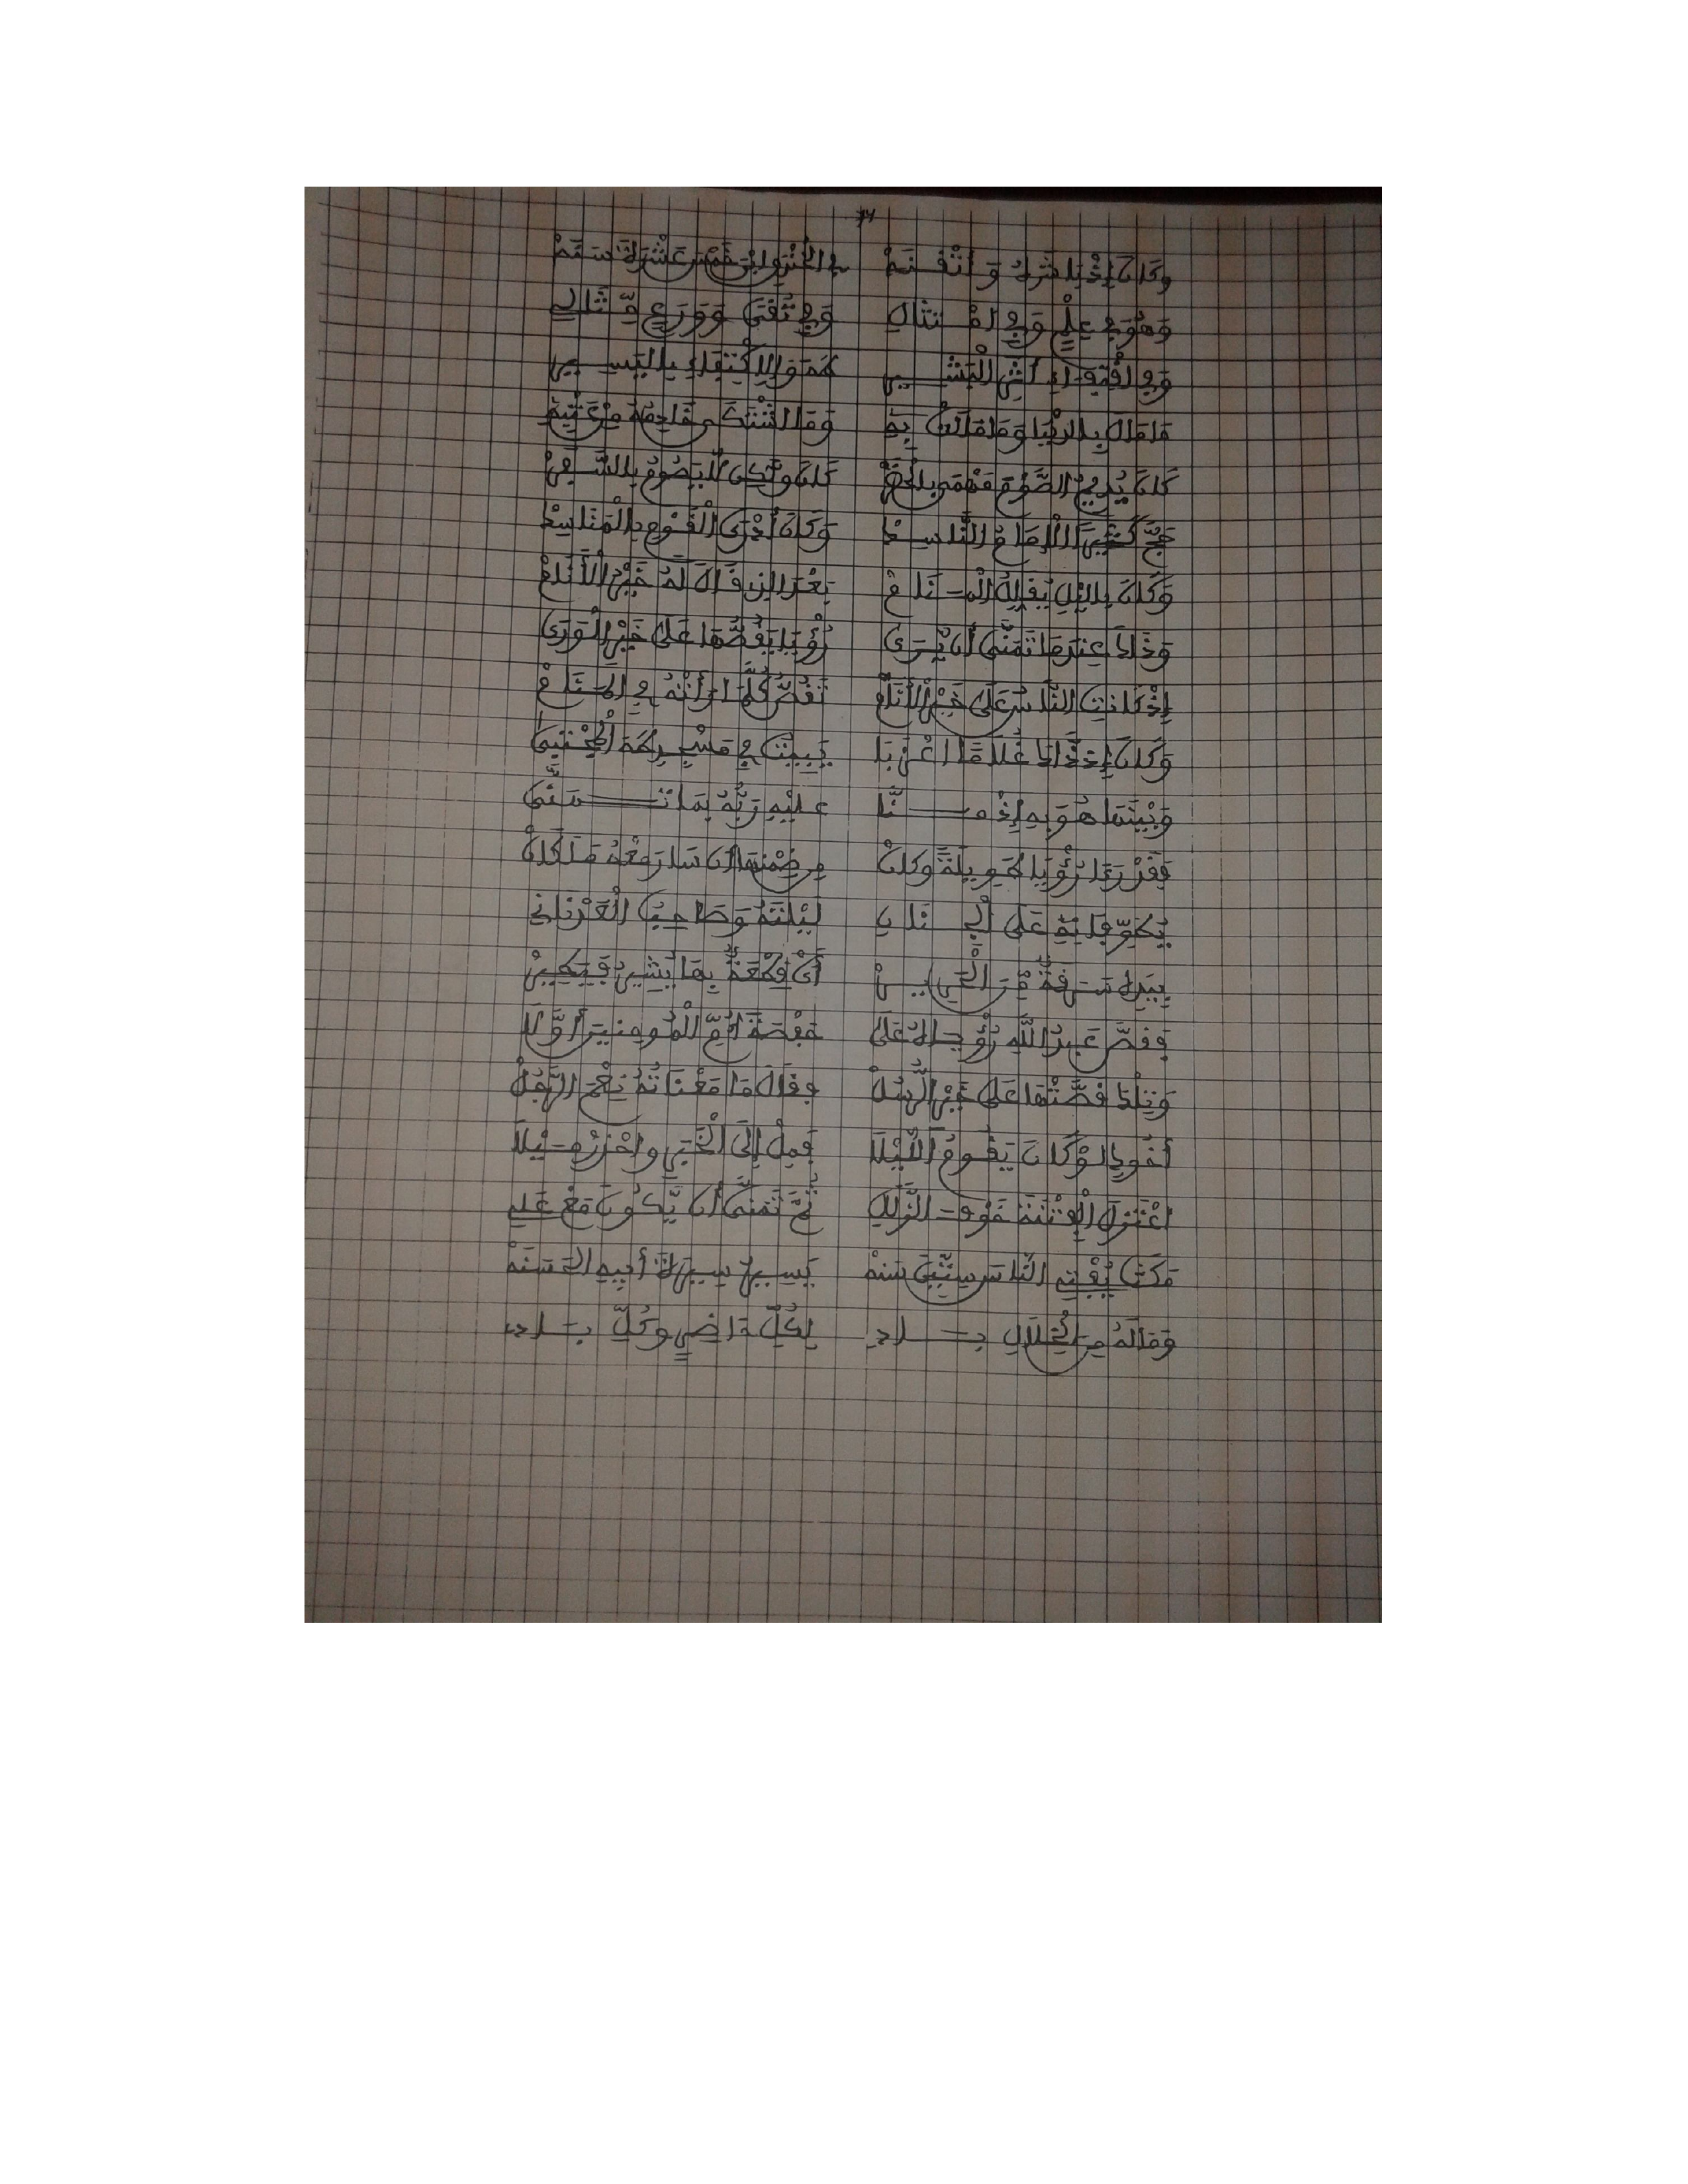 وَكَانَ إِذْ بَاشَرَهُ وَأَتْقَنَهْ في الخَنْدَقِ ابْنَ خَمْسَ عَشْرَةَ سَنَهْ
وَهُوَ في عِلْمٍ وَفي امْتِثَالِ وَفي تُقًى وَوَرَعٍ مِّثَالي
وَفي اقْتِفَاءِ أَثَرِ الْبَشِيرِ هُمَّ وَالِاكْتِفَاءِ بِالْيَسِيرِ
مَا مَالَ بِالدُّنْيَا وَمَا مَالَتْ بِهِ وَمَا اشْتَكَى
كَانَ يُدِيمُ الصَّوْمَ مَهْمَا بِالْحَضَرْ كَانَ وَلَكِنْ لَا يَصُومُ بِالسَّفَرْ
حَجَّ كَثِيراً الْإِمَامُ النَّاسِكْ وَكَانَ أَدْرَى الْقَوْمِ بِالْمَنَاسِكْ
وَكَانَ بِاللَّيْلِ يَقِلُّهُ الْمَنَامْ بَعْدَ الذِي قَالَ لَهُ خَيْرُ الْأَنَامْ
وَذَاكَ عِندَمَا تَمَنَّى أَن يَّرَى رُؤْيَا يَقُصُّهَا عَلَى خَيْرِ الْوَرَى
إِذْ كَانَتِ النَّاسُ عَلَى خَيْرِ الْأَنَامْ تَقُصُّ كُلَّ مَا رَأَتْهُ في الْمَنَامْ
وَكَانَ إِذْ ذَاكَ غُلَاماً اعْزَبَا يَبِيتُ في مَسْجِدِ طَهَ الْمُجْتَبَى
وَبَيْنَمَا هُوَ بِهِ إِذْ مَنَّا عَلَيْهِ رَبُّهُ بِمَا تَمَنَّى
فَقَدْ رَأَى رُؤْيَا طَوِيلَةً وَكَانْ مِن ضِمْنِهَا أَن سَارَ مَعْهُ مَلَكَانْ
يُطَوِّفَانِهِ عَلَى الْجِنَانِ لَيْلَتَهُ وَصَاحِبُ الْعَدْنَانِي
بِيَدِهِ سَرَقَةٌ مِّنَ الْحَرِيرْ أَيْ قِطْعَةٌ بِهَا يُشِيرُ فَيَطِيرْ
فَقَصَّ عَبْدُ اللَّهِ رُؤْيَاهُ عَلَى حَفْصَةَ امِّ الْمُومِنِينَ أَوَّلَا
وَتِلْكَ قَصَّتْهَا عَلَى خَيْرِ الرُّسُلْ فَقَالَ مَا مَعْنَاهُ نِعْمَ الرَّجُلْ
أَخُوكِ لَوْ كَانَ يَقُومُ اللَّيْلَا فَمِلْ إِلَى الْخَيْرِ وَاحْذَرْ مَيْلَا
اعْتَزَلَ الْفِتْنَةَ خَوْفَ الزَّلَلِ ثُمَّ تَمَنَّى أَن يَّكُونَ مَعْ عَلِي
مَكَثَ يُفْتِي النَّاسَ سِتِّينَ سَنَهْ يَسِيرُ سِيرَةَ أَبِيهِ الْحَسَنَهْ
وَمَا لَهُ مِنَ الْخِلَالِ بَادِ لِكُلِّ حَاضِرٍ وَكُلِّ بَادِ